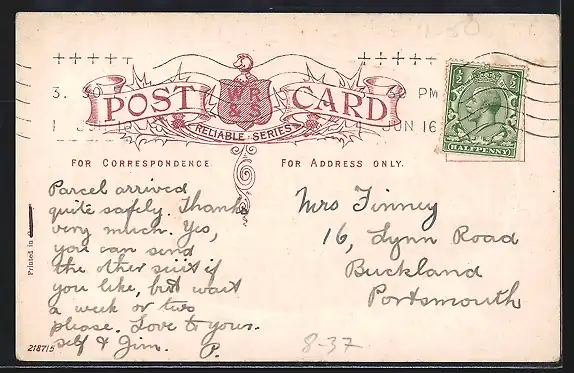 1-50
POST CARD
W R & S
RELIABLE SERIES
3. 6 PM
1 JUN 16
½ ½
HALFPENNY
FOR CORRESPONDENCE
FOR ADDRESS ONLY.
Parcel arrived
quite safely. Thanks
very much. Yes,
you can send
the other suit if
you like, but wait
a week or two
please. Love to your-
self & Jim. P.
Mrs Finney
16, Lynn Road
Buckland
Portsmouth
Printed in
218715
8-37